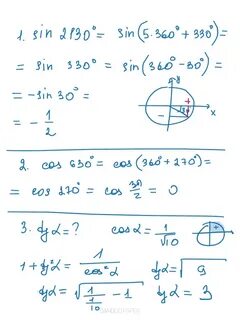 1. sin 2130° = sin(5·360°+330°) =
= sin 330° = sin(360°-30°) =
= -sin 30° =
= - 1/2
y
x
2. cos 630° = cos(360°+270°) =
= cos 270° = cos 3π/2 = 0
3. tg α = ? cos α = 1/√10
1 + tg²α = 1/cos²α tg α = √9
tg α = √(1/(1/10) - 1) tg α = 3